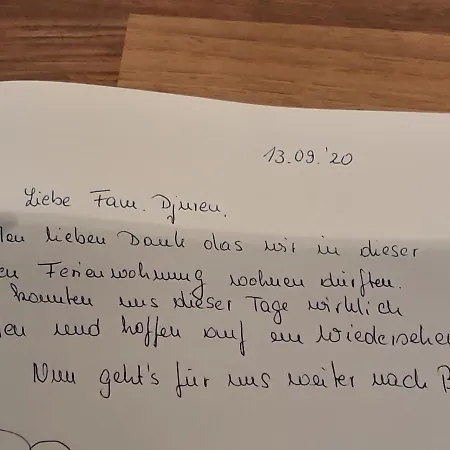 13.09.'20
Liebe Fam. Djuren,
lieben Dank das wir in dieser
Ferienwohnung wohnen dürften.
konnten uns dieser Tage wirklich
und hoffen auf ein Wiedersehen
Nun geht's für uns weiter nach